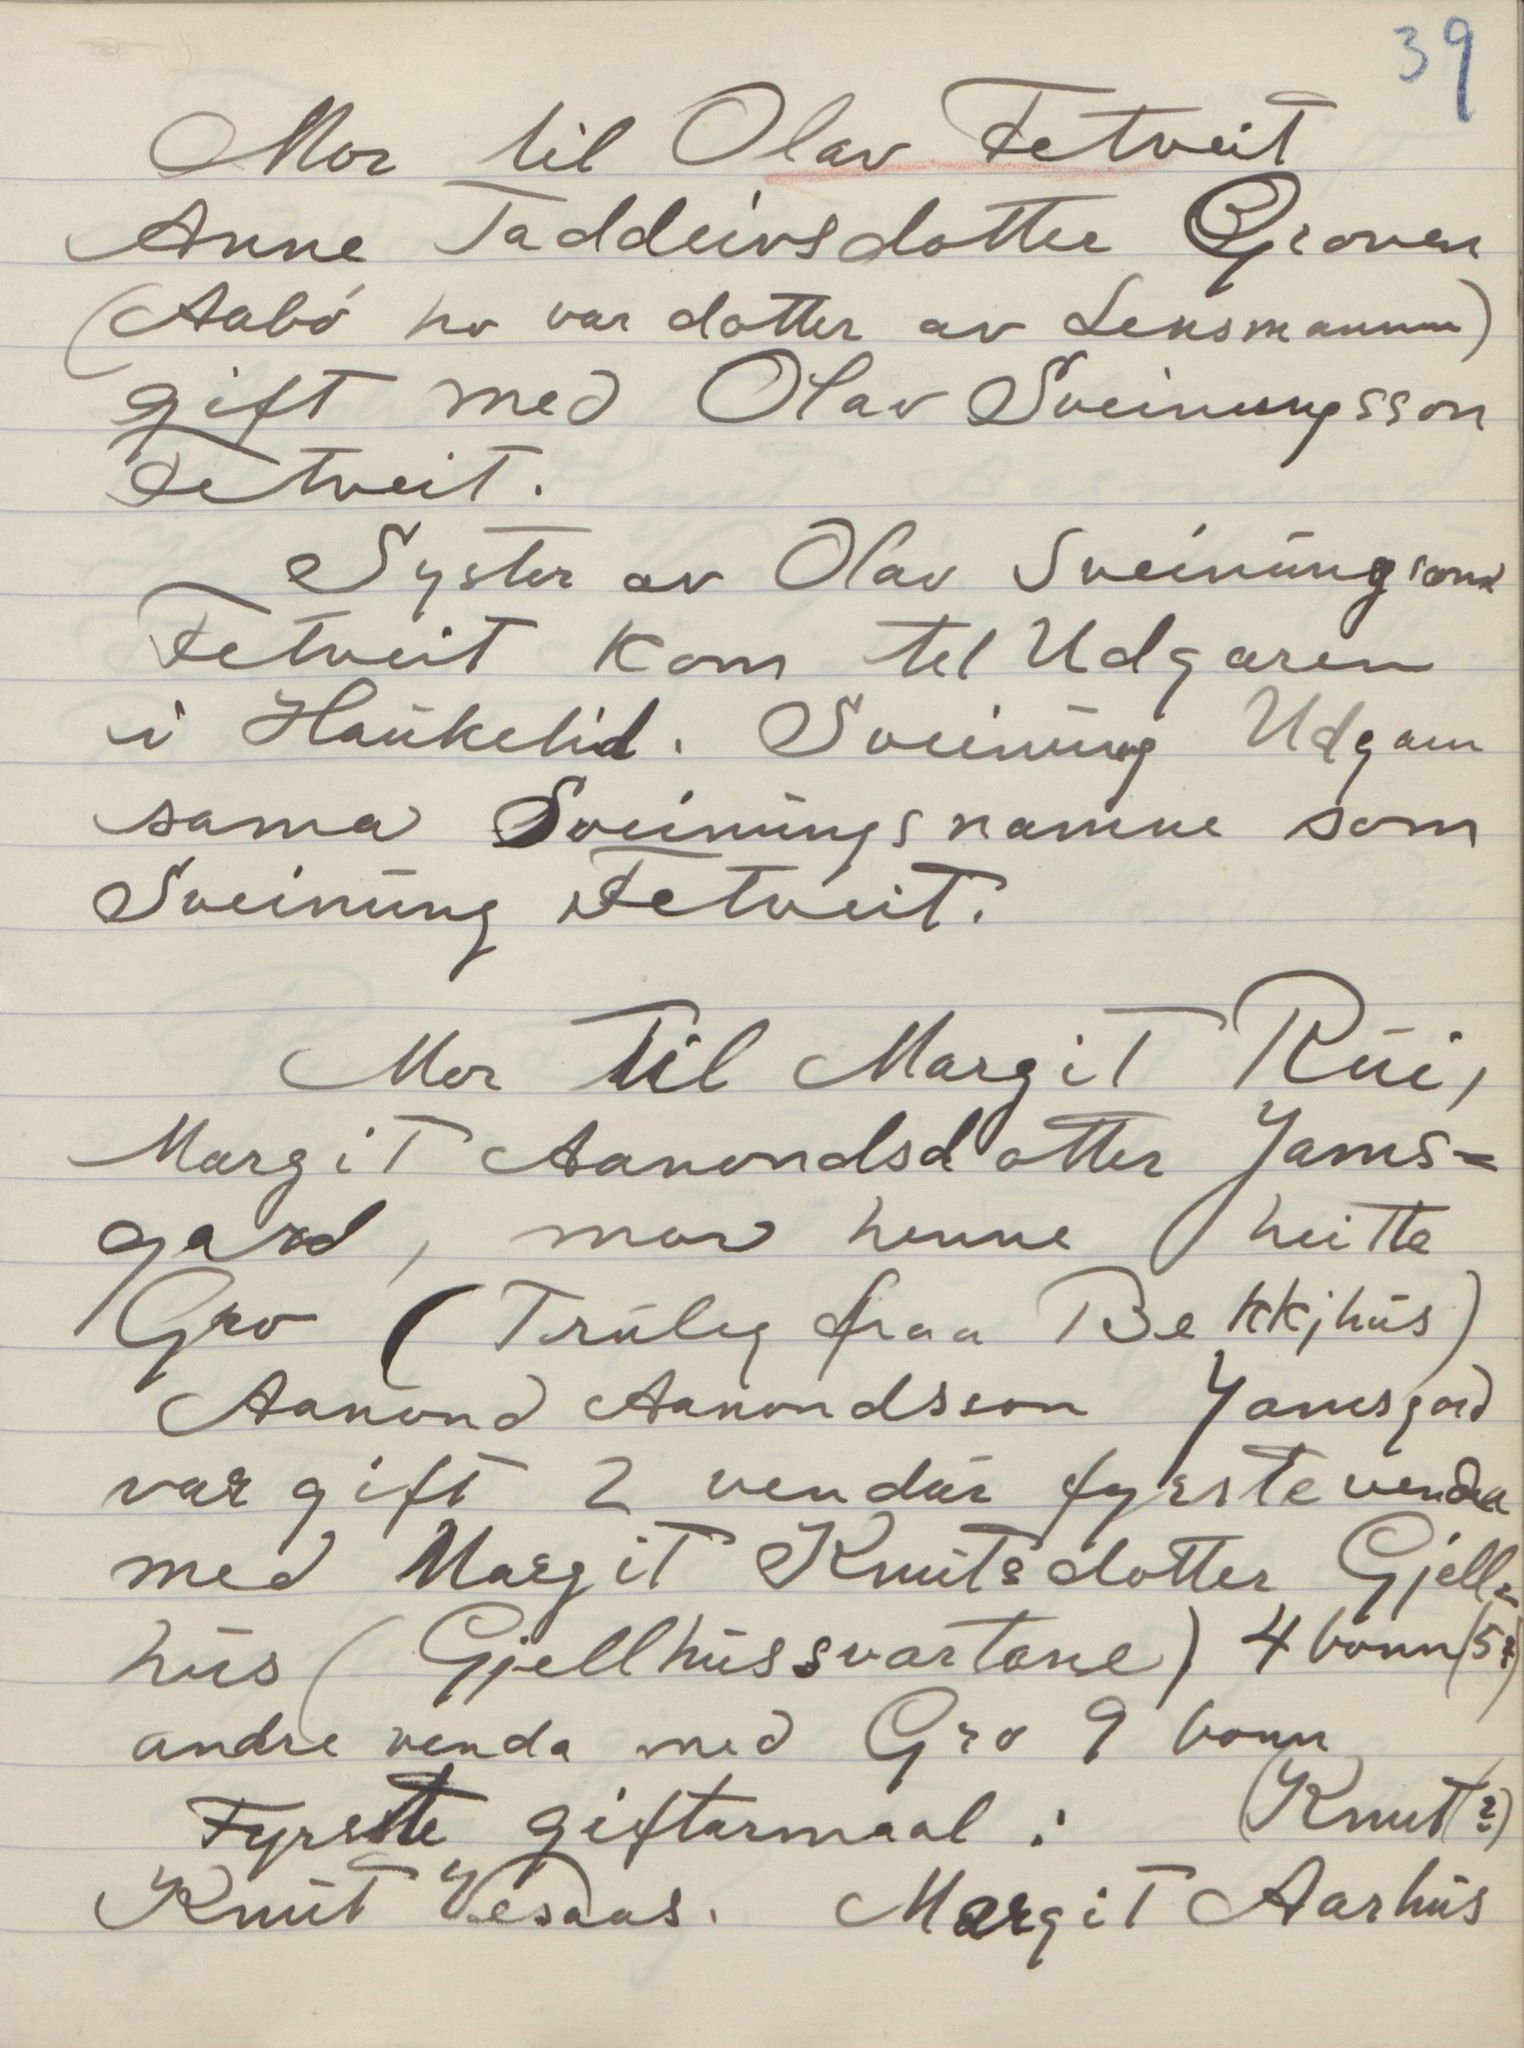 39
Mor til Olav Fetveit
Anne Taddeivsdotter Groven
(Aabö ho var dotter av Lensmannen)
gift med Olav Sveinungsson
Fetveit.
Syster av Olav Sveinungsons
Fetveit kom tel Udgaren
i Haukelid. Sveinung Udgarn
sama Sveinungsnamne som
Sveinung Fetveit.
Mor til Margit Rui,
Margit Aanondsdotter Jams=
gard, mor henne heitte
Gro (Truleg fraa Bekkjhus)
Aanond Aanondsson Jamsgard
var gift 2 vendar fyrste venda
med Margit Knutsdotter Gjell=
hus (Gjellhussvartane) 4 bonn (5?)
andre venda med Gro 9 bonn
Fyrste giftarmaal: (Knut?)
Knut Vesaas. Margit Aarhus